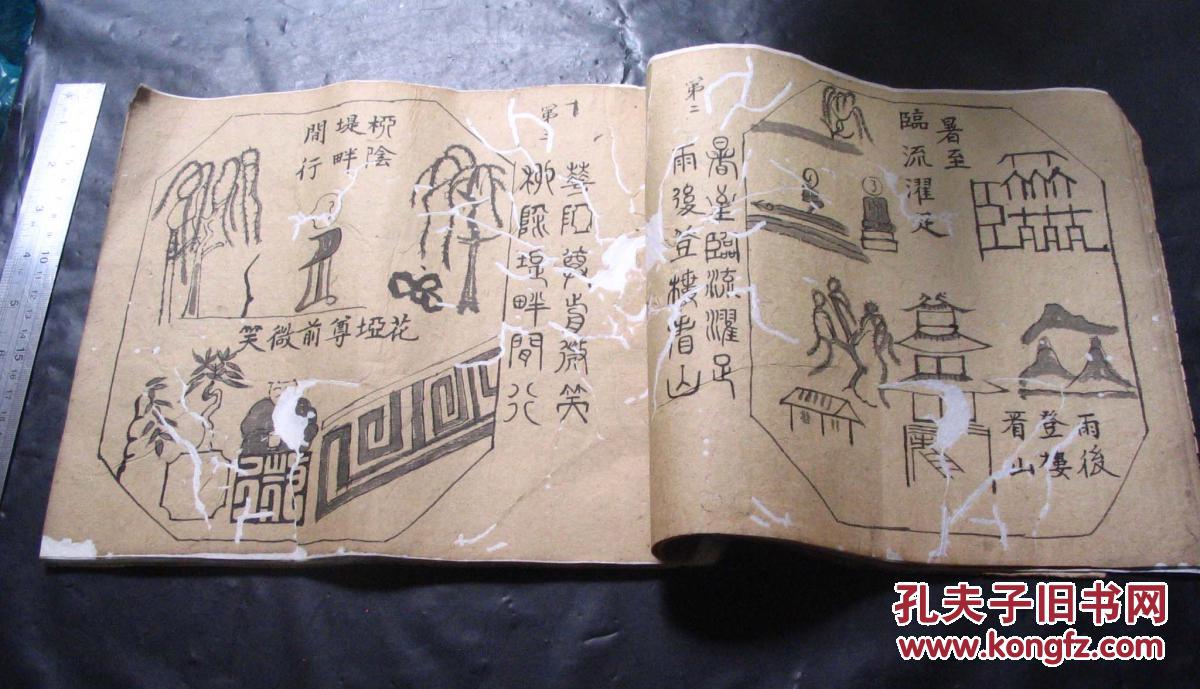 暑至
臨流濯足
雨後
登樓
看山
暑至臨流濯足
第二
雨後登樓看山
尊前微笑
第三
柳陰堤畔間行
柳陰
堤畔
間行
花埡尊前微笑
孔夫子旧书网
www.kongfz.com